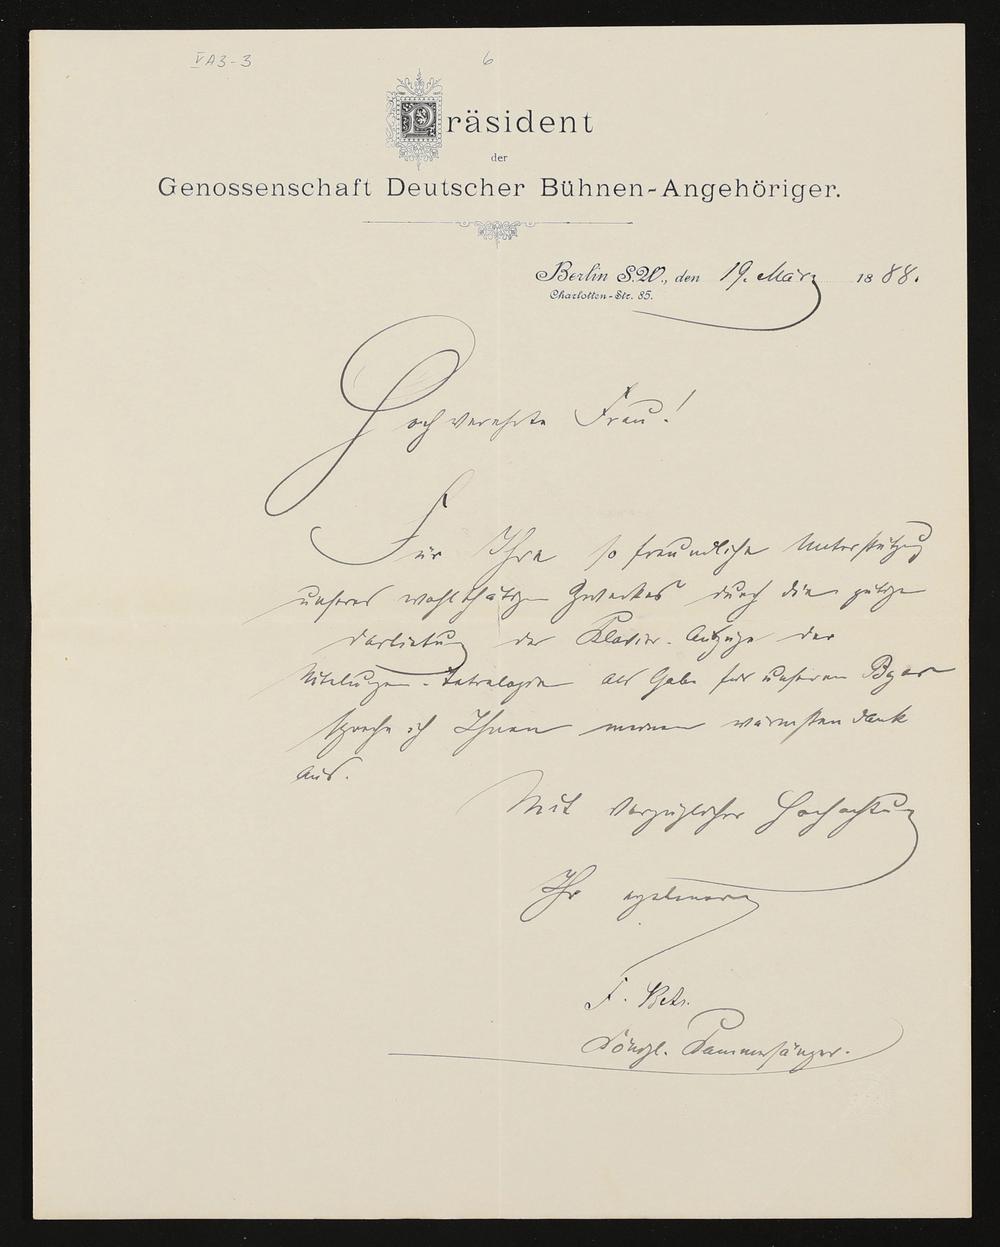 VA3-3 6
Präsident
der
Genossenschaft Deutscher Bühnen-Angehöriger.
Berlin S.W., den 19. März 1888.
Charlotten-Str. 85.
Hochverehrte Frau!
Für Ihre so freundliche Unterstützung
unseres wohlthätigen Zweckes durch die gütige
Darbietung der Klavier-Auszüge der
Nibelungen-Tetralogie als Gabe für unseren Bazar
spreche ich Ihnen meinen wärmsten Dank
aus.
Mit vorzüglicher Hochachtung
Ihr ergebener
F. Betz.
Königl. Kammersänger.